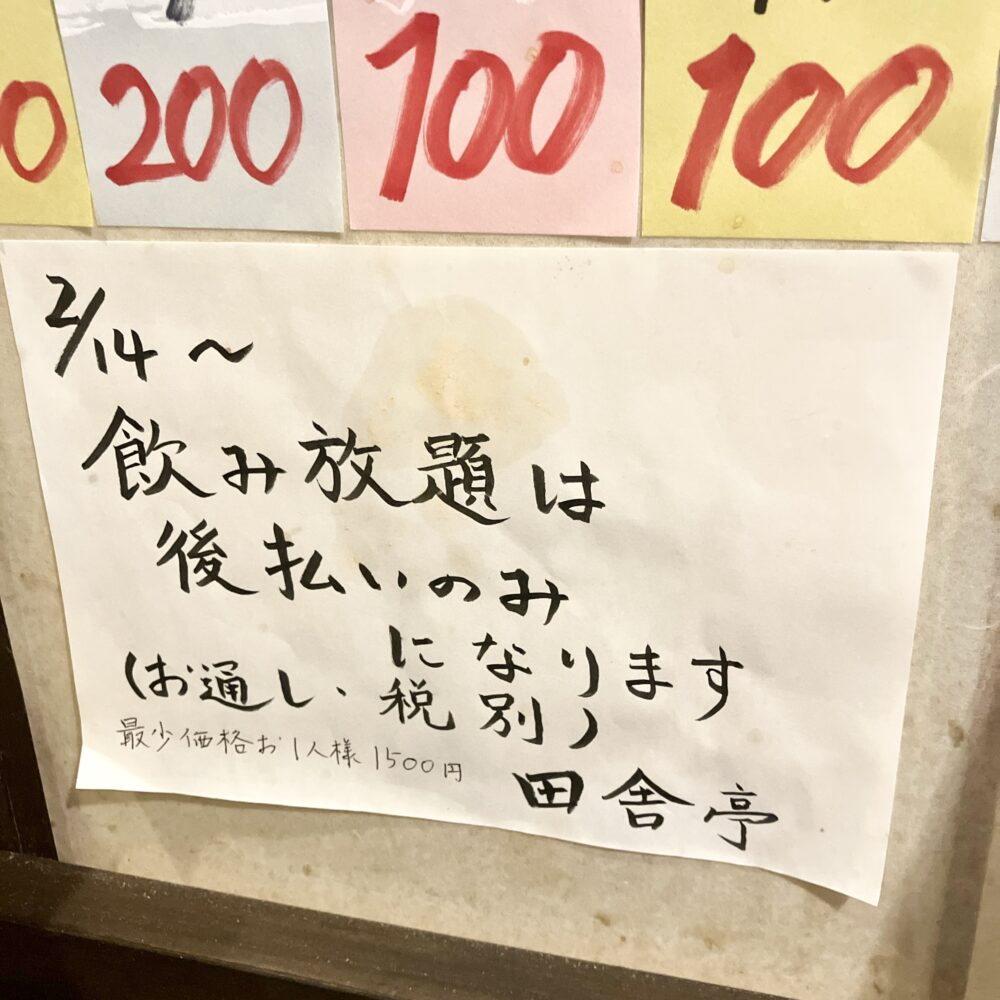 200
100
100
2/14～
飲み放題は
後払いのみ
になります
(お通し・税別)
最少価格お1人様1500円
田舎亭